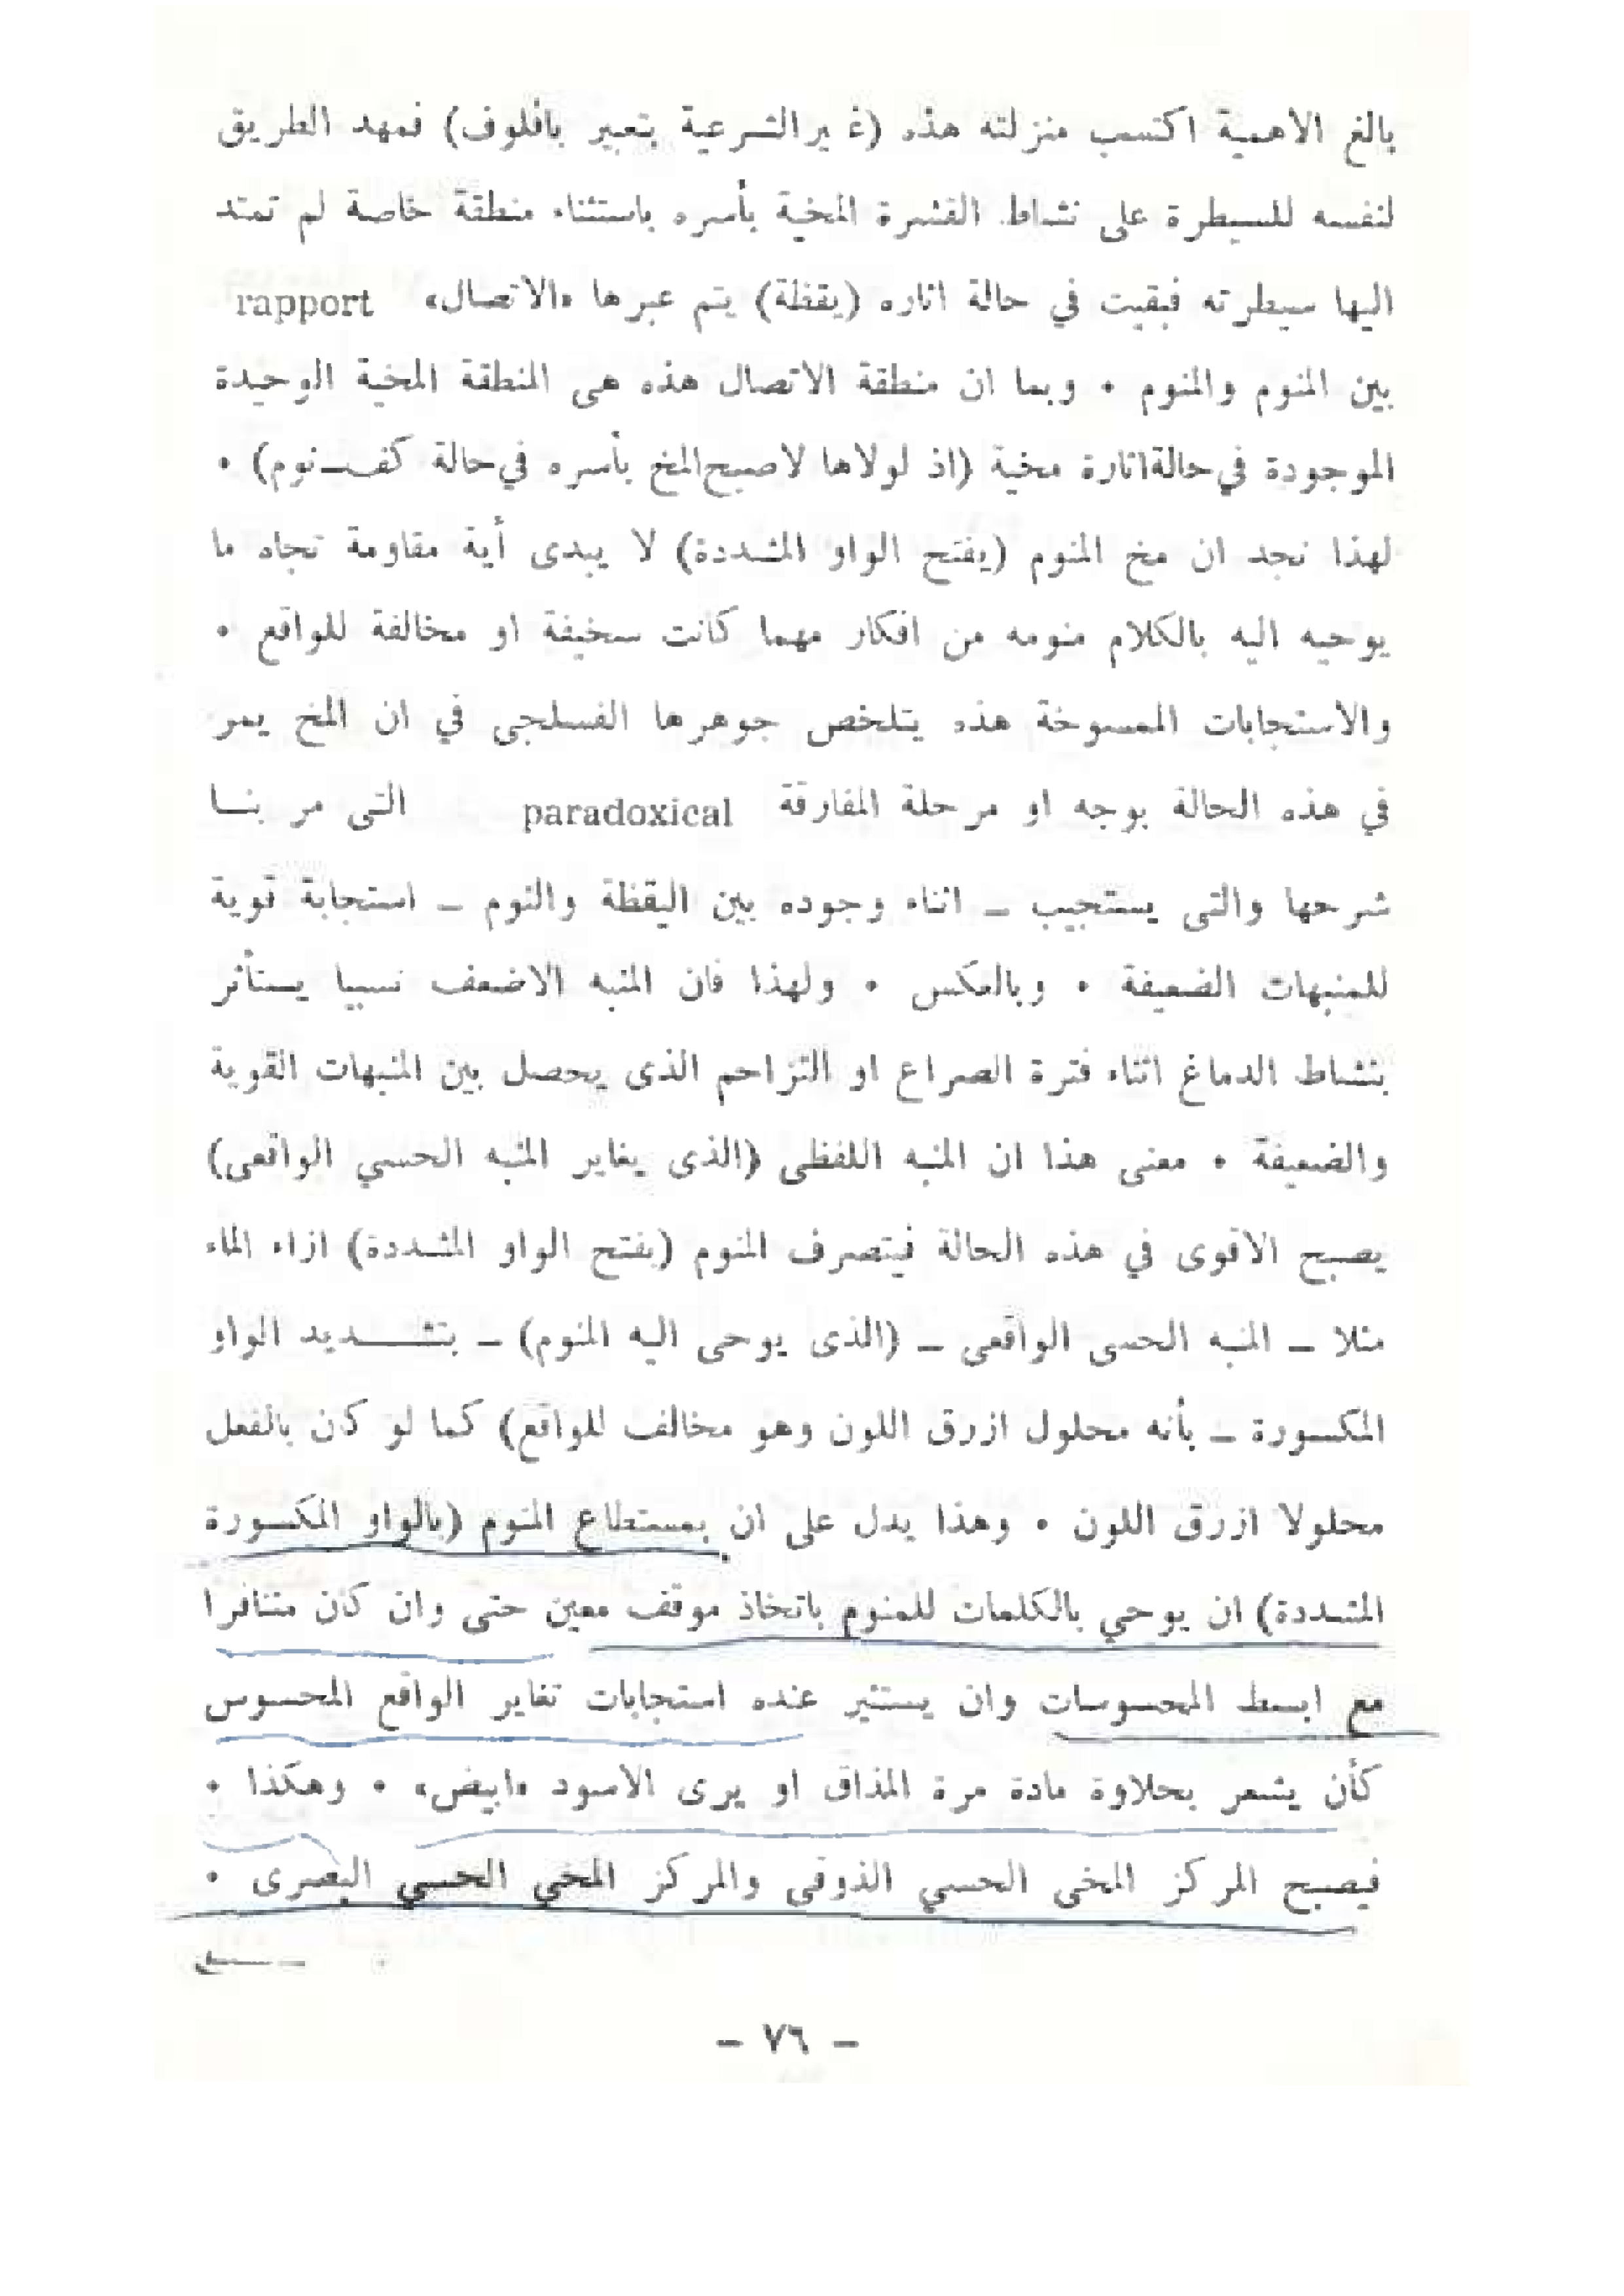 بالغ الاهمية اكتسب منزلته هذه (غ يرالشرعية بتعبير بافلوف) فمهد الطريق
لنفسه للسيطرة على نشاط القشرة المخية بأسره باستثناء منطقة خاصة لم تمتد
اليها سيطرته فبقيت في حالة اثاره (يقظة) يتم عبرها «الاتصال» rapport
بين المنوم والمنوم • وبما ان منطقة الاتصال هذه هى المنطقة المخية الوحيدة
الموجودة في حالة اثارة مخية (اذ لولاها لاصبح المخ بأسره في حالة كف_نوم) •
لهذا نجد ان مخ المنوم (بفتح الواو المشددة) لا يبدى أية مقاومة تجاه ما
يوحيه اليه بالكلام منومه من افكار مهما كانت سخيفة او مخالفة للواقع •
والاستجابات الممسوخة هذه يتلخص جوهرها الفسلجى في ان المخ يمر
في هذه الحالة بوجه او مرحلة المفارقة paradoxical التى مر بنا
شرحها والتى يستجيب _ اثناء وجوده بين اليقظة والنوم _ استجابة قوية
للمنبهات الضعيفة • وبالعكس • ولهذا فان المنبه الاضعف نسبيا يستأثر
بنشاط الدماغ اثناء فترة الصراع او التزاحم الذى يحصل بين المنبهات القوية
والضعيفة • معنى هذا ان المنبه اللفظى (الذى يغاير المنبه الحسي الواقعى)
يصبح الاقوى في هذه الحالة فيتصرف المنوم (بفتح الواو المشددة) ازاء الماء
مثلا _ المنبه الحسى الواقعى _ (الذى يوحى اليه المنوم) _ بتشديد الواو
المكسورة _ بأنه محلول ازرق اللون وهو مخالف للواقع) كما لو كان بالفعل
محلولا ازرق اللون • وهذا يدل على ان بمستطاع المنوم (بالواو المكسورة
المشددة) ان يوحي بالكلمات للمنوم باتخاذ موقف معين حتى وان كان متنافرا
مع ابسط المحسوسات وان يستثير عنده استجابات تغاير الواقع المحسوس
كأن يشعر بحلاوة مادة مرة المذاق او يرى الاسود «ابيض» • وهكذا •
فيصبح المركز المخى الحسي الذوقى والمركز المخي الحسي البصرى •
– ٧٦ –